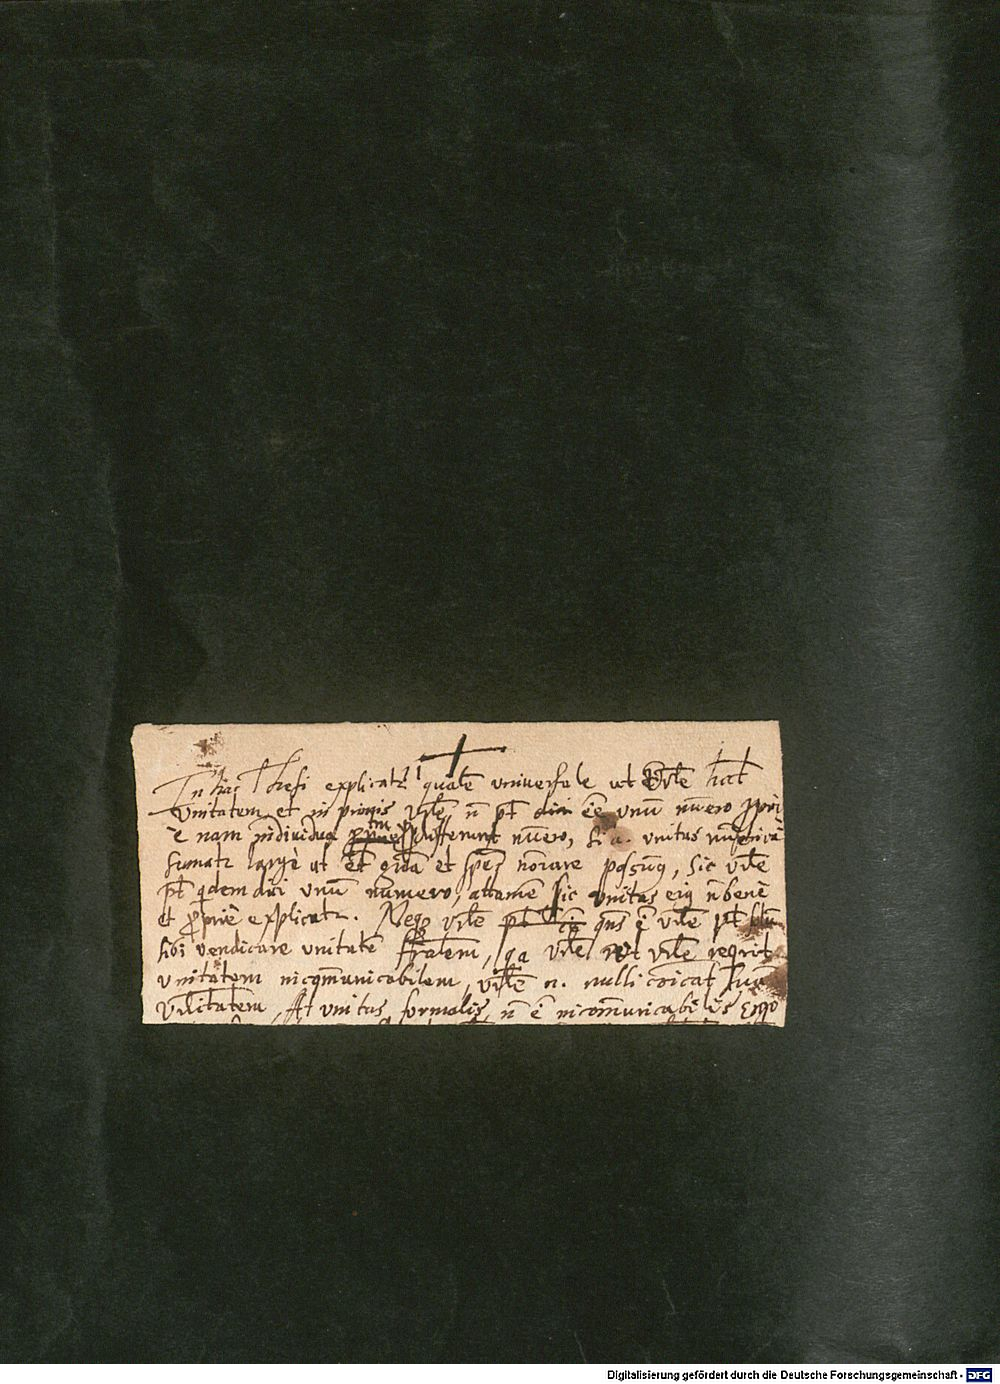 In hac Thesi explicatr quale universale ut Vrle hat
Unitatem et in primis Vrle n pt ee unu nuero
e nam individua differunt nuero, Si a. unitas
sumatr large ut et et spes norare possuq, sic vrle
pt qdem dici unu numero, attame sic unitas eiq n bene
et pprie explicatr. Neqo vrle qns e vrle pt
sibi vendicare unitate fralem, qa vrle ut vrle reqrit
unitatem incomunicabilem, vrle n. nulli coicat sua
vrlitatem, At unitas formalis n e incomunicabilis Ergo
Digitalisierung gefördert durch die Deutsche Forschungsgemeinschaft - DFG